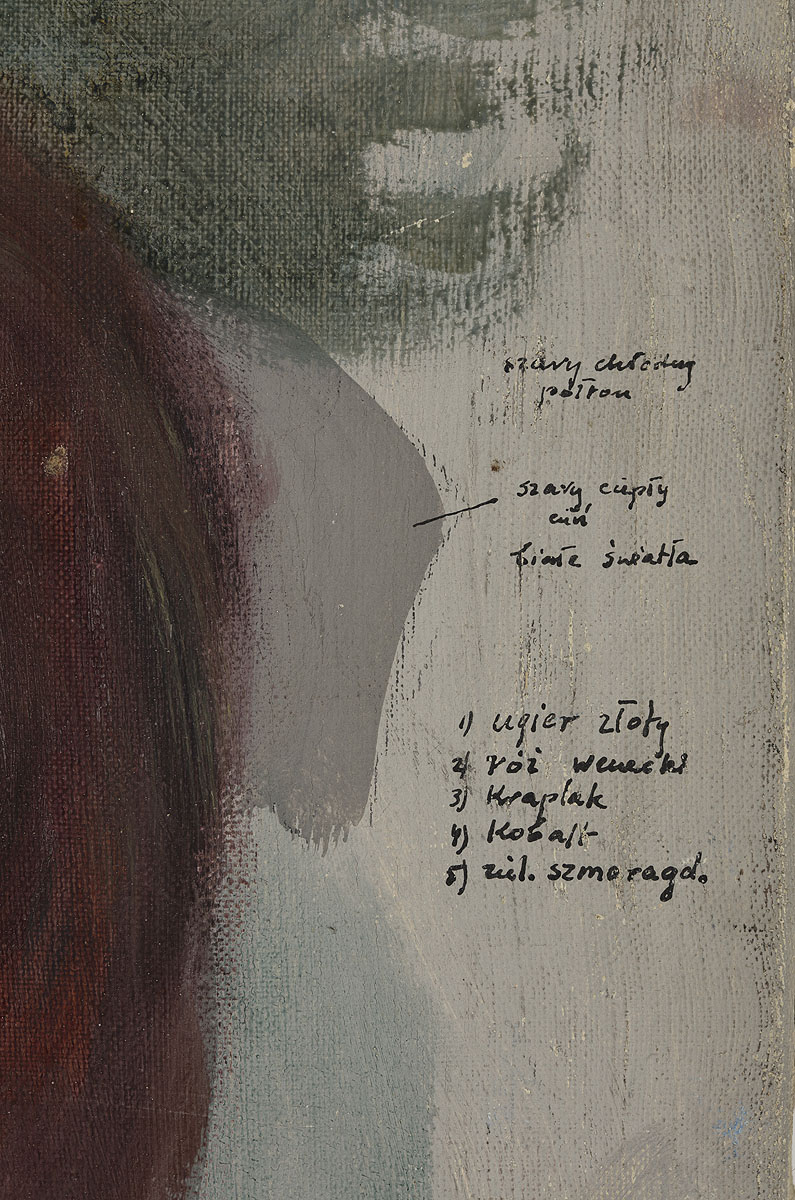 szary chłodny
półton
szary ciepły
cień
białe światła
1) ugier złoty
2) róż wenecki
3) Kraplak
4) Kobalt
5) ziel. szmaragd.